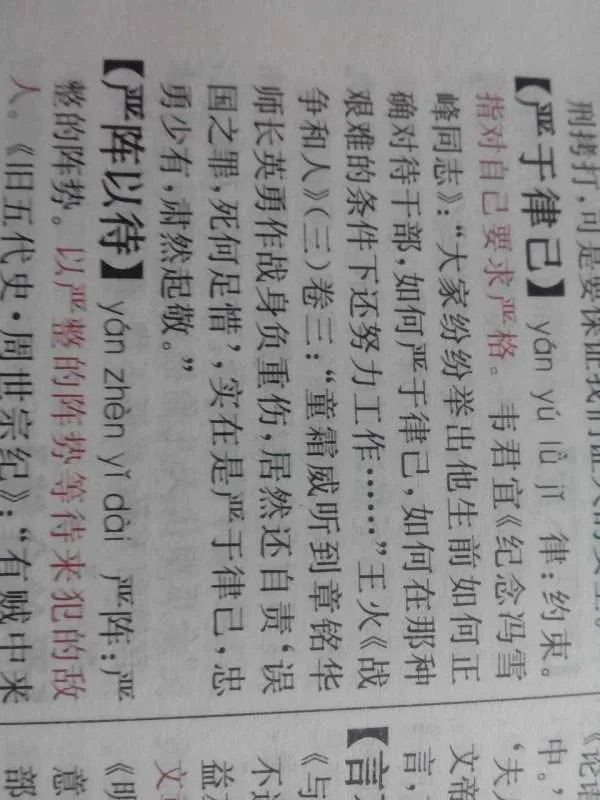 刑拷打,可是要保证我们
【严于律己】 yán yú lǜ jǐ 律:约束。
指对自己要求严格。韦君宜《纪念冯雪
峰同志》:“大家纷纷举出他生前如何正
确对待干部,如何严于律己,如何在那种
艰难的条件下还努力工作……”王火《战
争和人》(三)卷三:“童霜威听到章铭华
师长英勇作战身负重伤,居然还自责‘误
国之罪,死何足惜’,实在是严于律己,忠
勇少有,肃然起敬。”
【严阵以待】 yán zhèn yǐ dài 严阵:严
整的阵势。以严整的阵势等待来犯的敌
人。《旧五代史·周世宗纪》:“有贼中来
《论语
中。”
‘夫
文帝
言,
【言
《与
不
益
文
《明
意
部